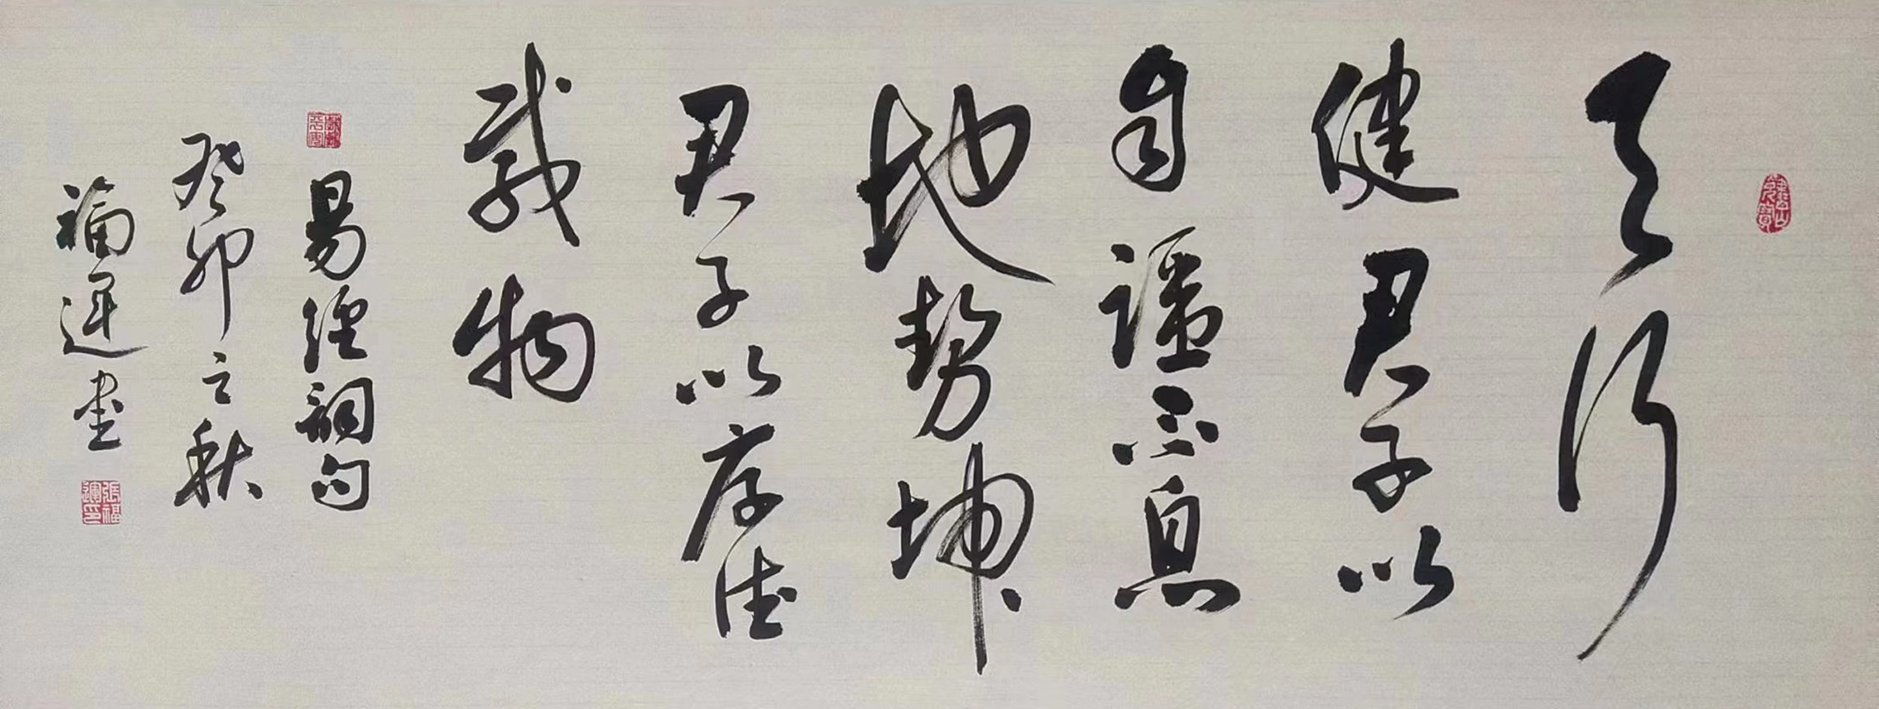 天行
健君子以
自强不息
地势坤
君子以厚德
载物
易经词句
癸卯之秋
福运书
張福運印